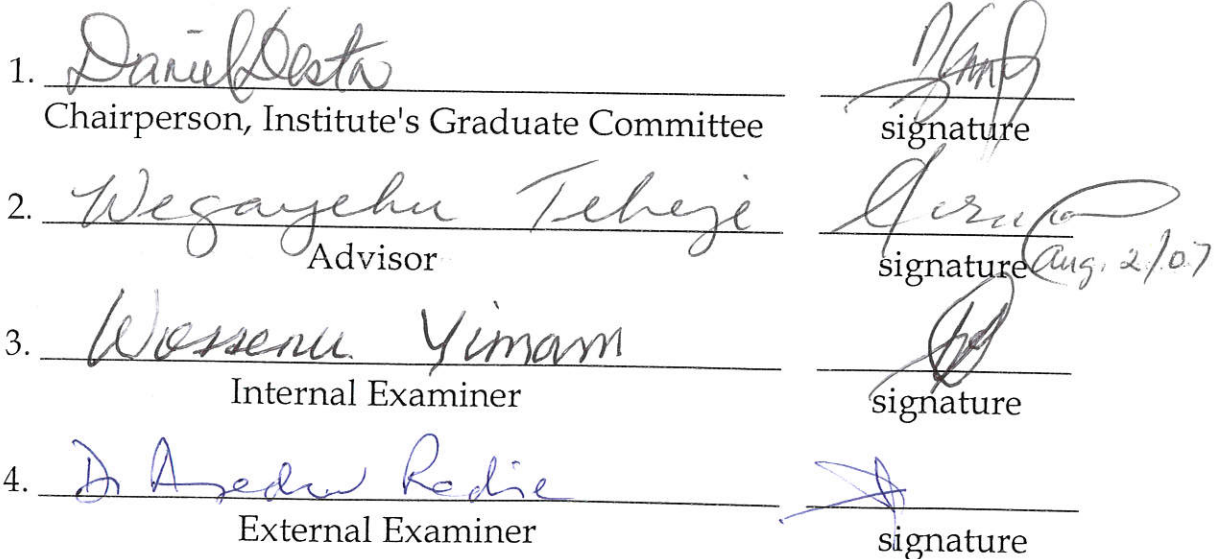 1. Daniel Desta
Chairperson, Institute's Graduate Committee signature
2. Wegayehu Tebeje
Advisor signature Aug. 2/07
3. Wossenu Yimam
Internal Examiner signature
4. Dr
External Examiner signature